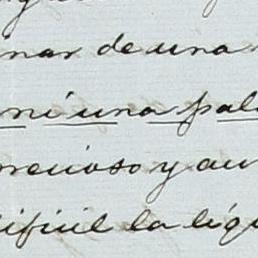 nar de una
ni una pala
precioso y au
dificil la liqu